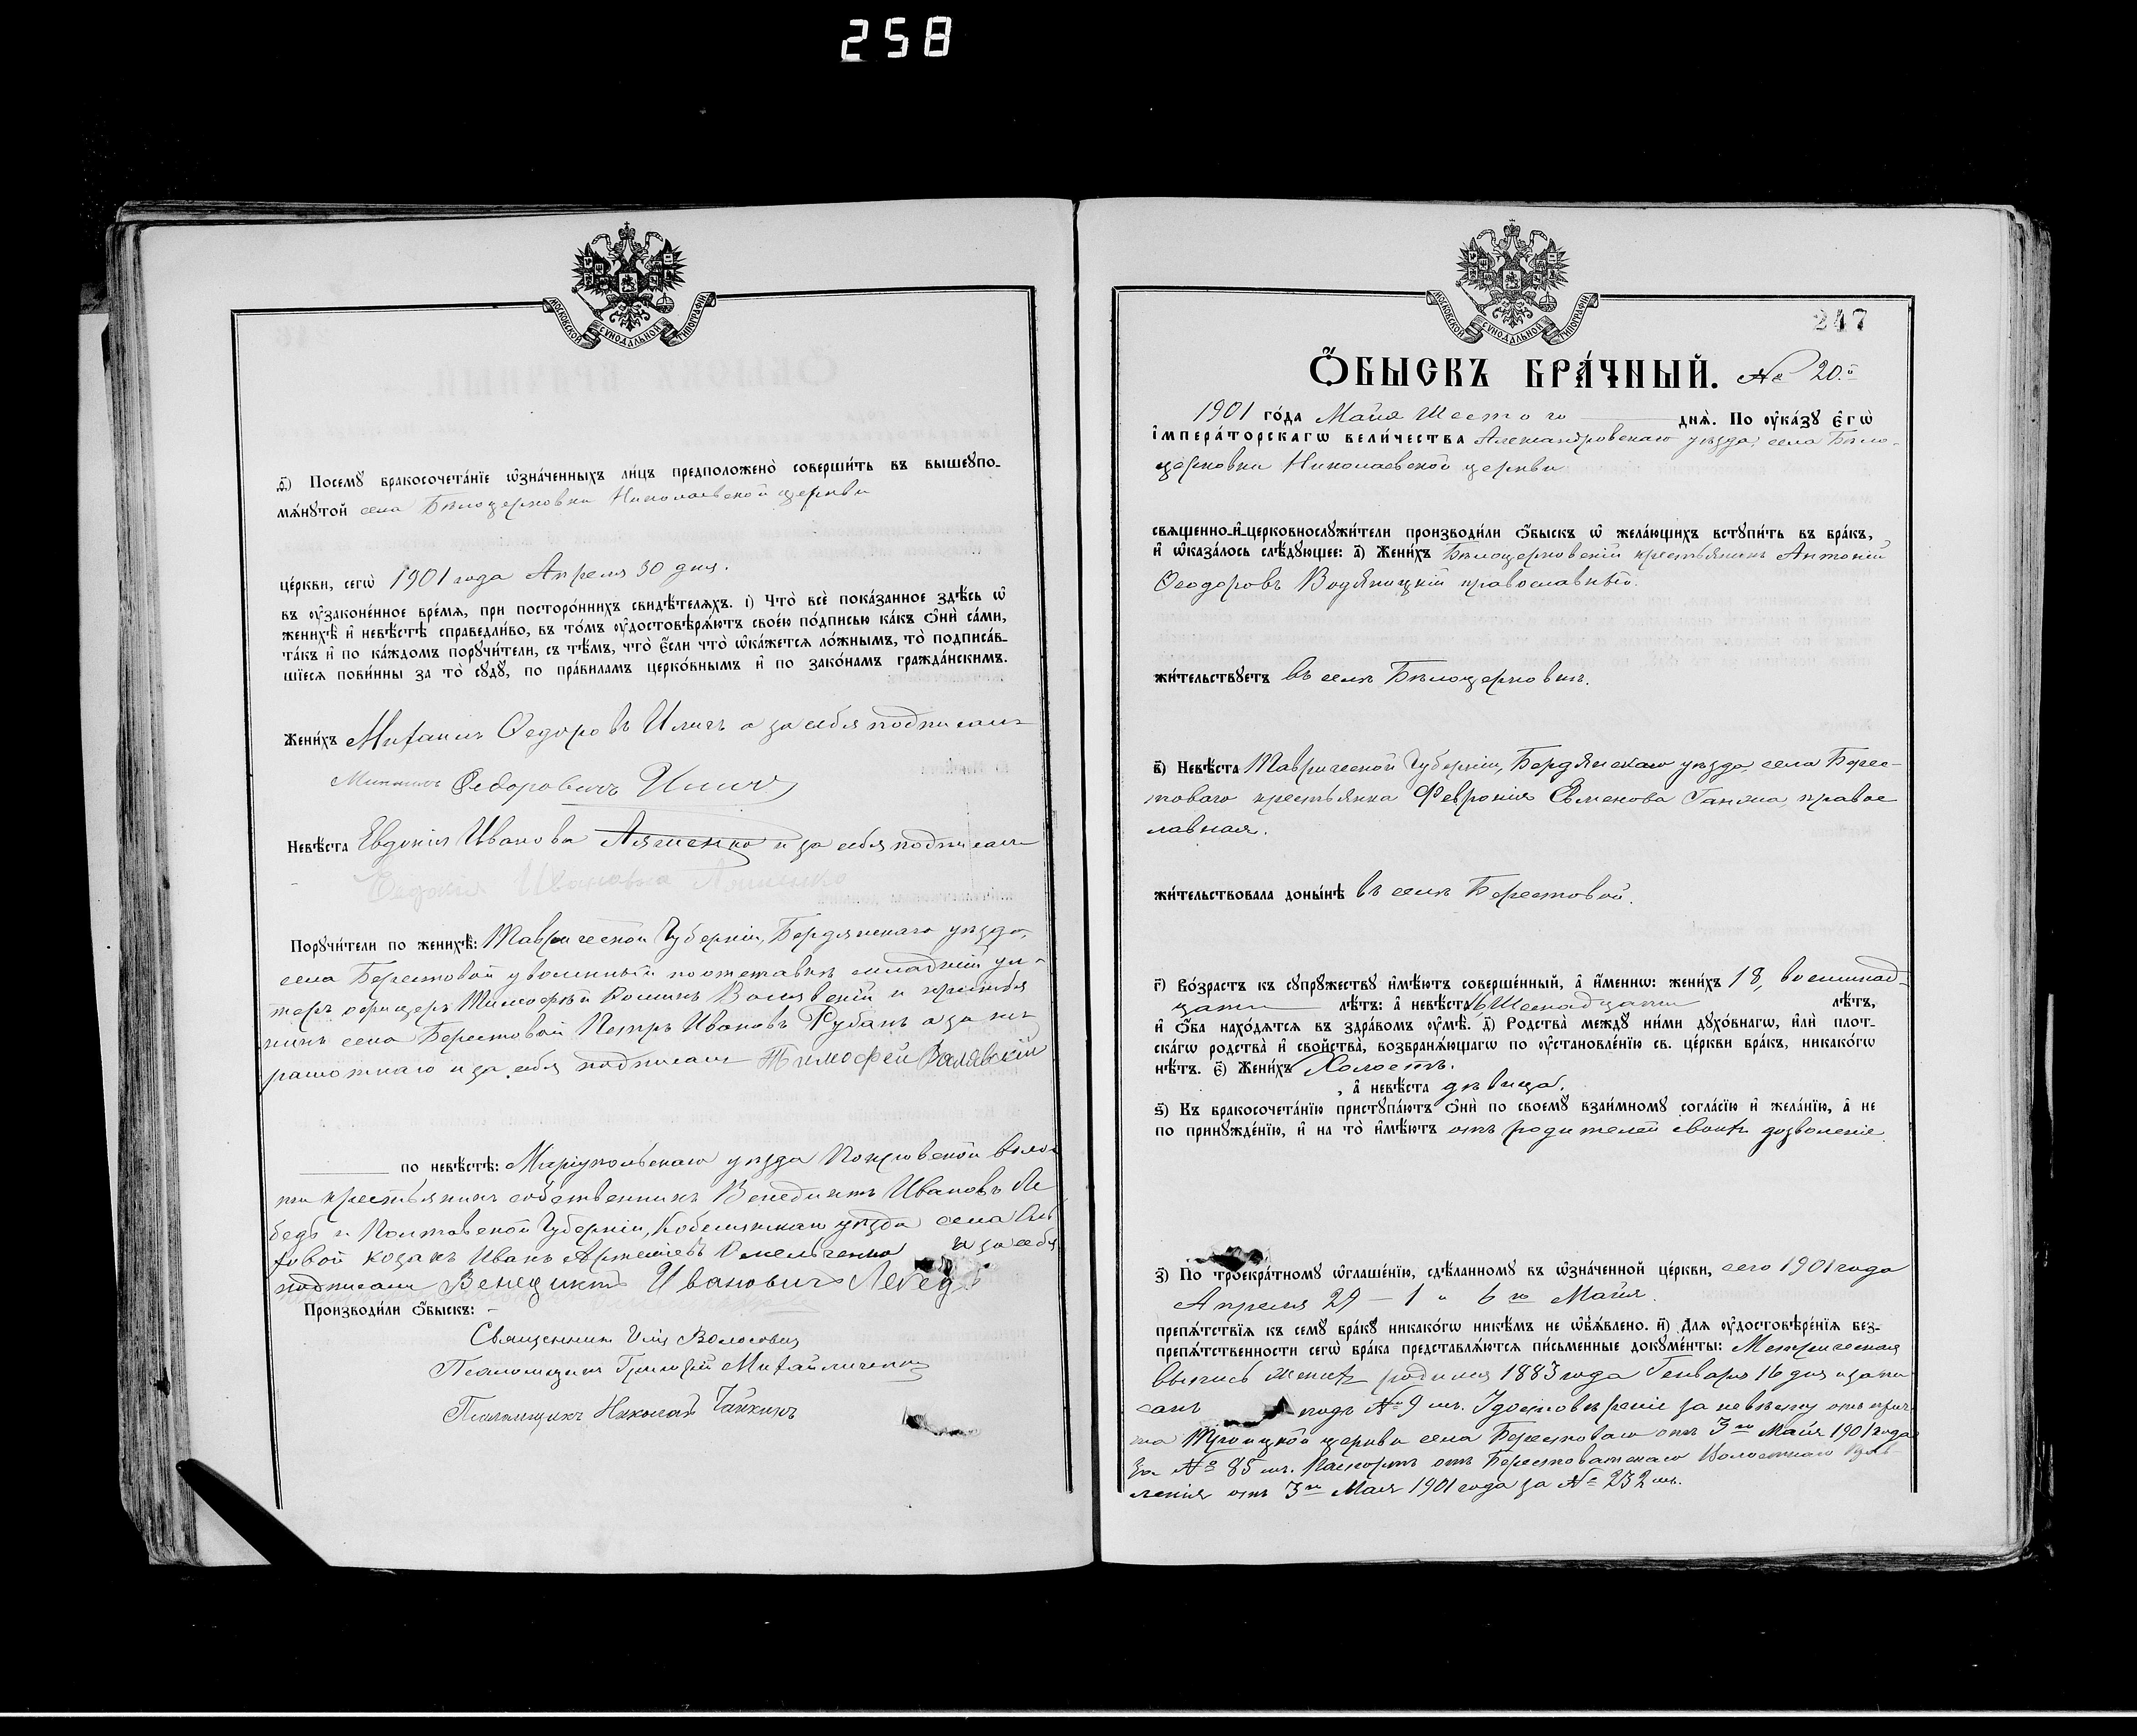 258
МОСКОВСКОЙ СѴНОДАЛЬНОЙ ТИПОГРАФІИ
ѳ҃) Посемꙋ̀ бракосочета́нїе ѡ҆зна́ченныхъ ли́цъ предположено̀ соверши́ть въ вышеꙋпо-
мѧ́нꙋтой села Бѣлоцерковки Николаевской церкви
це́ркви, сегѡ̀ 1901 года Апреля 30 дня.
въ ᲂу҆законе́нное вре́мѧ, при посторо́ннихъ свидѣ́телѧхъ. і҃) Что̀ всѐ пока́занное здѣ́сь ѡ҆
женихѣ̀ и҆ невѣ́стѣ справедли́во, въ то́мъ ᲂу҆достовѣрѧ́ютъ свое́ю по́дписью ка́къ ѻ҆нѝ са́ми,
та́къ и҆ по ка́ждомъ порꙋчи́тели, съ тѣ́мъ, что̀ є҆́сли что̀ ѡ҆ка́жетсѧ ло́жнымъ, то̀ подписа́в-
шїесѧ пови́нны за то̀ сꙋдꙋ̀, по пра́виламъ церко́внымъ и҆ по зако́намъ гражда́нскимъ.
Жени́хъ Михаилъ Ѳедоровъ Иличъ а за себя подписалъ
Михаилъ Ѳедоровичъ Иличъ
Невѣ́ста Евдокія Иванова Ляшенко и за себя подписала
Евдокія Ивановна Ляшенко
Порꙋчи́тели по женихѣ̀: Таврической Губерніи, Бердянскаго уѣзда,
села Берестовой уволенный въ отставку младшій ун-
теръ офицеръ Тимофѣй Валявскій и крестья
нинъ села Берестовой Петръ Ивановъ Рубанъ а за не
грамотнаго и за себя подписалъ Тимофей Валявский
по невѣ́стѣ: Маріупольскаго уѣзда Покровской волос
ти крестьянинъ собственникъ Венедиктъ Ивановъ Ле
бедь и Полтавской Губерніи, Кобелякскаго уѣзда села
козакъ Иванъ Омельченко и за себя
подписалъ Венедиктъ Ивановичъ Лебедь
Производи́ли ѻ҆́быскъ:
Священникъ Илія Волосовичъ
Псаломщикъ Григорій Михайличенко
Псаломщикъ Николай Чайкинъ
МОСКОВСКОЙ СѴНОДАЛЬНОЙ ТИПОГРАФІИ
247
Ѻ҆́БЫСКЪ БРА́ЧНЫЙ. № 20.й
1901 го́да Майя Шестого днѧ̀. По ᲂу҆ка́зꙋ Є҆гѡ̀
і҆мпера́торскагѡ вели́чества Александровскаго уѣзда, села Бѣло-
церковки Николаевской церкви
свѧщенно-и҆-церковнослꙋжи́тели производи́ли ѻ҆́быскъ ѡ҆ жела́ющихъ встꙋпи́ть въ бра́къ,
и҆ ѡ҆каза́лось слѣ́дꙋющее: а҃) Жени́хъ Бѣлоцерковскій крестьянинъ Антоній
Ѳеодоровъ Водяницкій православный.
жи́тельствꙋетъ въ селѣ Бѣлоцерковкѣ.
в҃) Невѣ́ста Таврической Губерніи, Бердянскаго уѣзда, села Берес-
товаго крестьянка Февронія Евменова Ганжа, правос
лавная.
жи́тельствовала доны́нѣ въ селѣ Берестовой.
г҃) Во́зрастъ къ сꙋпрꙋ́жествꙋ и҆мѣ́ютъ соверше́нный, а҆ и҆́менно: жени́хъ 18, восемнад-
цати лѣ́тъ: а҆ невѣ́ста 16 Шеснадцати лѣ́тъ,
и҆ ѻ҆́ба нахо́дѧтсѧ въ здра́вомъ ᲂу҆мѣ̀. д҃) Родства̀ междꙋ̀ ни́ми дꙋхо́внагѡ, и҆лѝ плот-
ска́гѡ родства̀ и҆ сво́йства, возбранѧ́ющагѡ по ᲂу҆становле́нїю св. це́ркви бра́къ, никако́гѡ
нѣ́тъ. є҃) Жени́хъ Холостъ.
, а҆ невѣ́ста дѣвица.
ѕ҃) Къ бракосочета́нїю пристꙋпа́ютъ ѻ҆нѝ по своемꙋ̀ взаи́мномꙋ согла́сїю и҆ жела́нїю, а҆ не
по принꙋжде́нїю, и҆ на то̀ и҆мѣ́ютъ отъ родителей своихъ дозволеніе.
з҃) По троекра́тномꙋ ѡ҆глаше́нїю, сдѣ́ланномꙋ въ ѡ҆зна́ченной це́ркви, сего 1901 года
Апреля 29 – 1 и 6го Майя.
препѧ́тствїѧ къ семꙋ̀ бра́кꙋ никако́гѡ никѣ́мъ не ѡ҆б̾ѧ́влено. и҃) Длѧ ᲂу҆достовѣре́нїѧ без-
препѧ́тственности сегѡ̀ бра́ка представлѧ́ютсѧ пи́сьменные докꙋме́нты: Метрическая
выпись жениха родился 1883 года Генваря 16 дня и запи
санъ подъ № 9 мъ. Удостовѣреніе за невѣсту отъ прич
та Троицкой церкви села Берестоваго отъ 3го Майя 1901 года
за № 85 мъ. Паспортъ отъ Берестоватскаго Волостнаго Прав-
ленія отъ 3го Мая 1901 года за № 232 мъ.